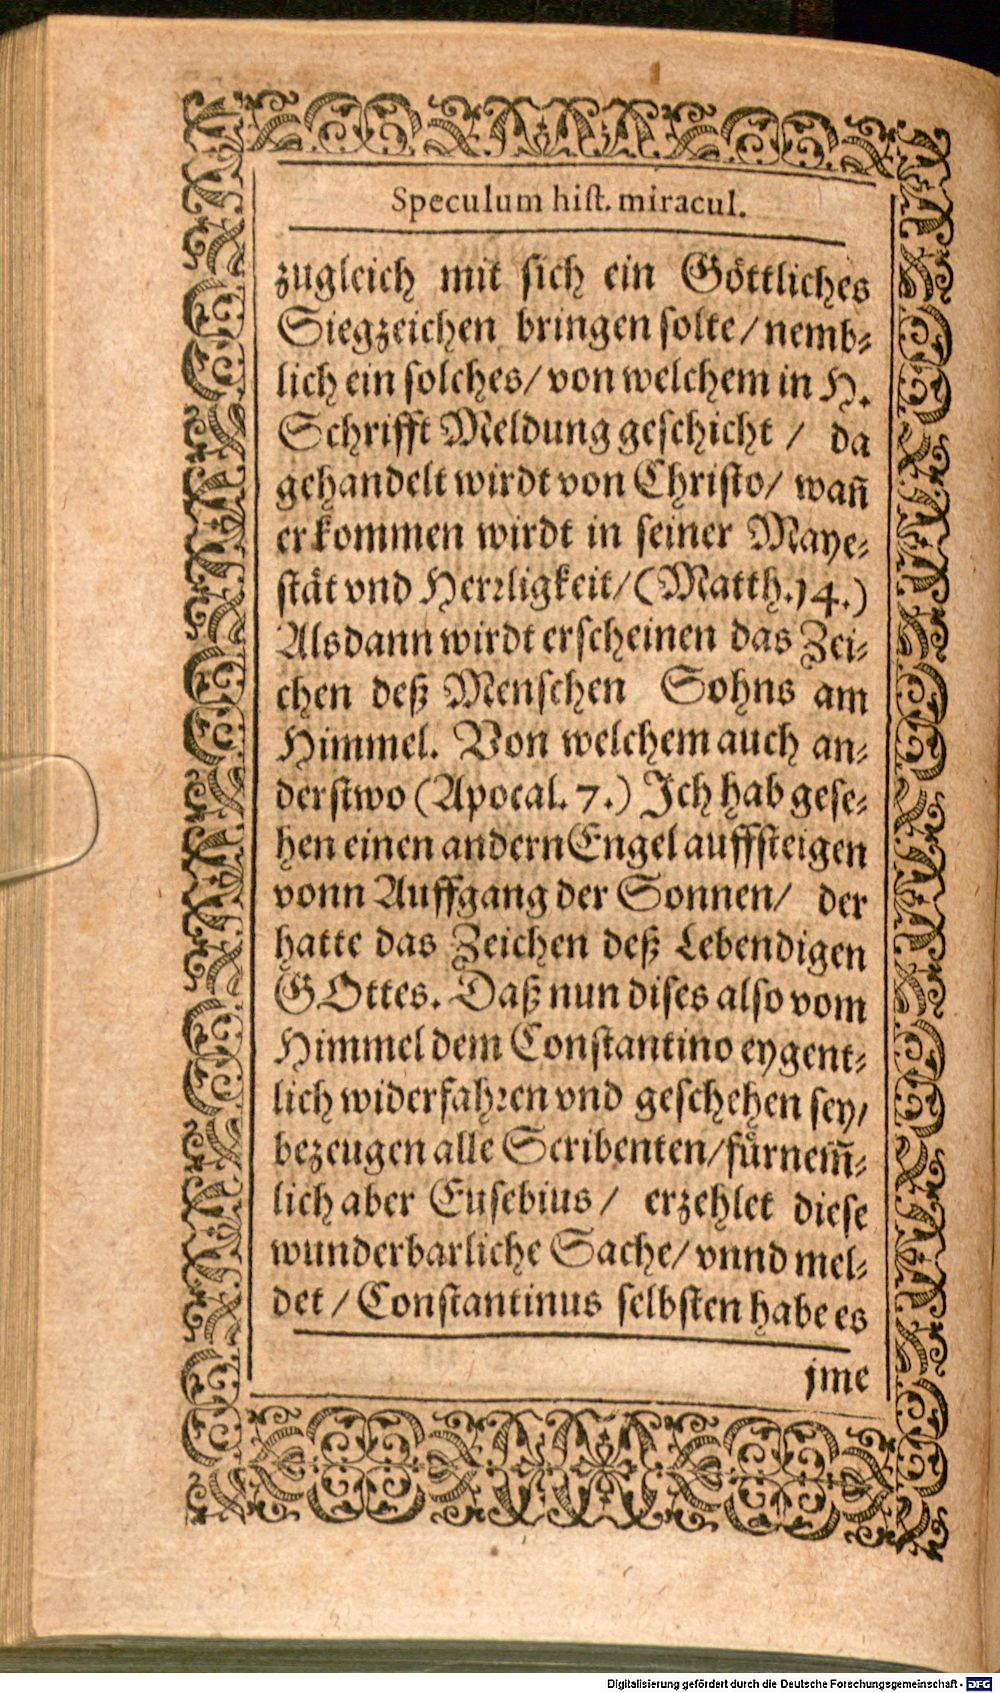 Speculum hist. miracul.
zugleich mit sich ein Göttliches
Siegzeichen bringen solte/ nemb-
lich ein solches/ von welchem in H.
Schrifft Meldung geschicht / da
gehandelt wirdt von Christo/ wañ
er kommen wirdt in seiner Maye-
stät vnd Herrligkeit/ (Matth. 14.)
Alsdann wirdt erscheinen das Zei-
chen deß Menschen Sohns am
Himmel. Von welchem auch an-
derstwo (Apocal. 7.) Jch hab gese-
hen einen andern Engel auffsteigen
vonn Auffgang der Sonnen/ der
hatte das Zeichen deß Lebendigen
GOttes. Daß nun dises also vom
Himmel dem Constantino eygent-
lich widerfahren vnd geschehen sey/
bezeugen alle Scribenten/ fürnem̃-
lich aber Eusebius / erzehlet diese
wunderbarliche Sache/ vnnd mel-
det / Constantinus selbsten habe es
jme
Digitalisierung gefördert durch die Deutsche Forschungsgemeinschaft - DFG